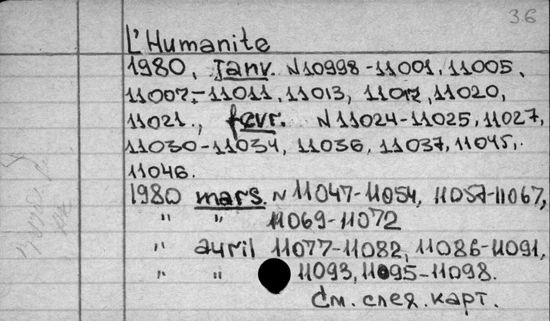 36
L'Humanite
1980, Janv. N10998-11001, 11005,
11007-11011, 11013, 11017, 11020,
11021., fevr. N11024-11025, 11027,
11030-11034, 11036, 11037, 11045,
11046.
1980 mars. N 11047-11054, 11057-11067,
" " 11069-11072
" avril 11077-11082, 11086-11091,
" " 11093, 11095-11098.
См. след. карт.